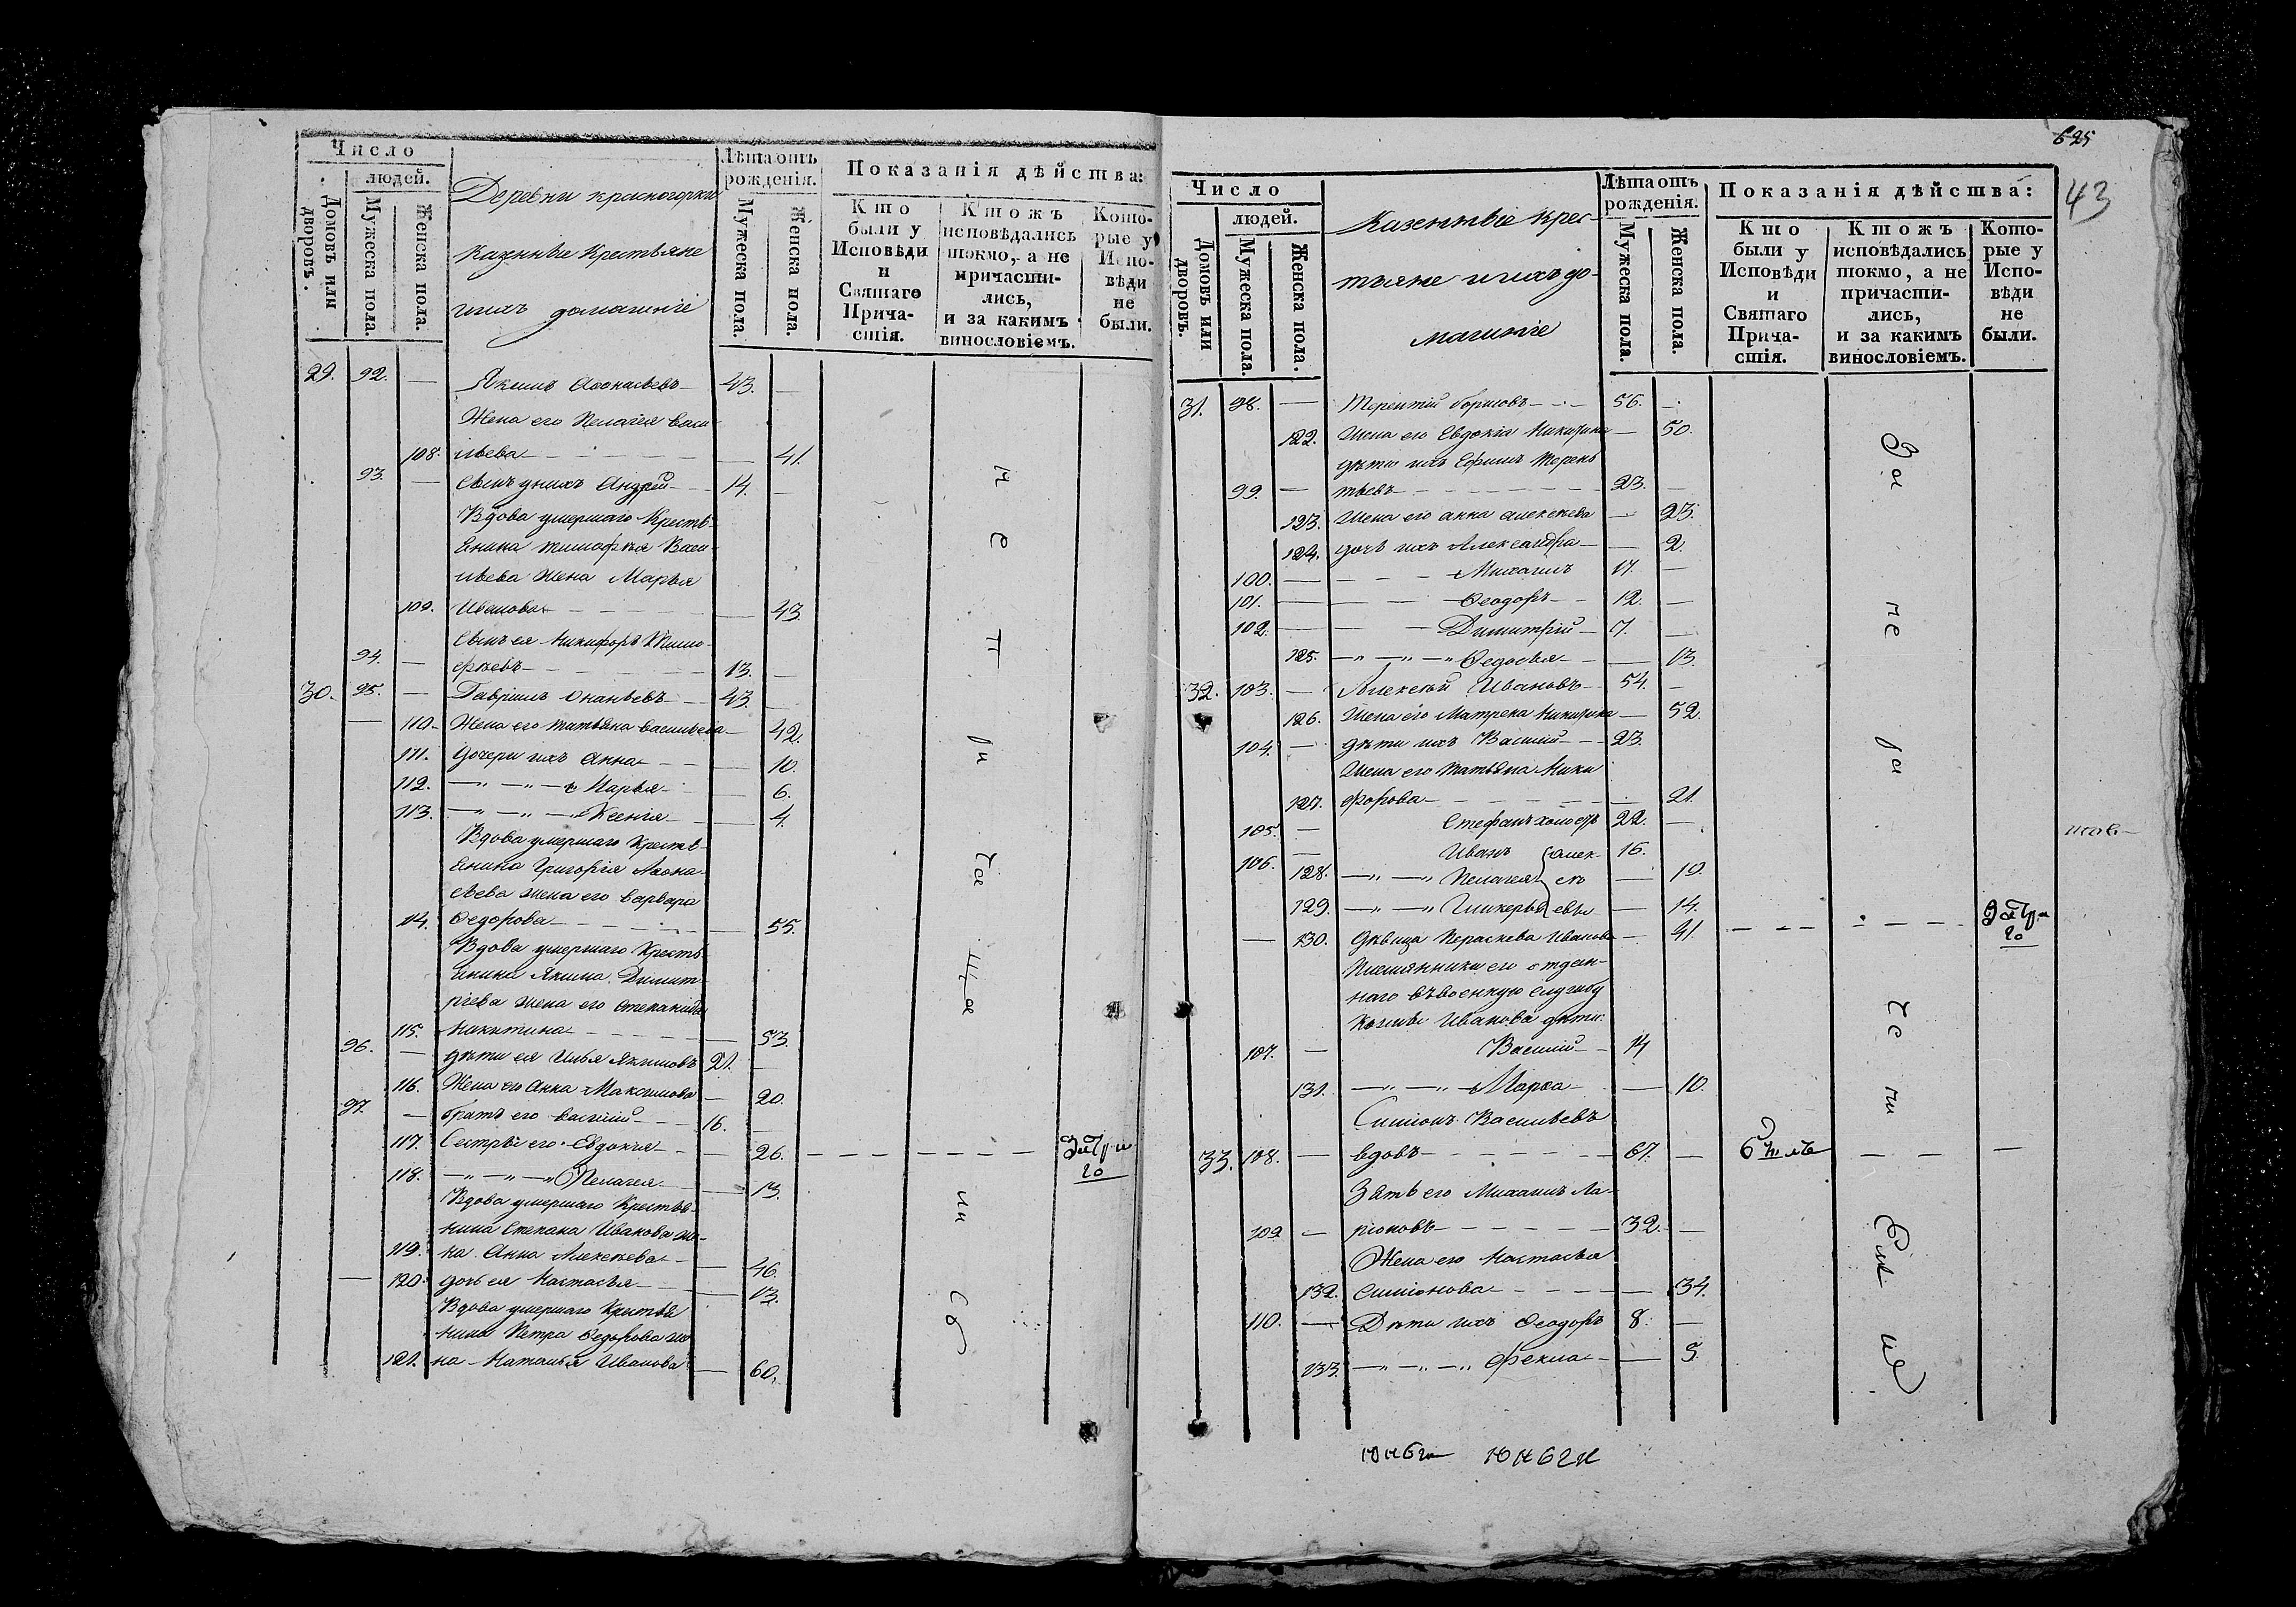 Число
людей.
Домовъ или дворовъ.
Мужеска пола.
Женска пола.
Деревни красногорки
казенные Крестьяне
ихъ домашніе
Лѣта отъ рожденія.
Мужеска пола.
Женска пола.
Показанія дѣйства:
Кто были у Исповѣди и Святаго Причастія.
Ктожъ исповѣдались токмо, а не причастились, и за какимъ винословіемъ.
Которые у Исповѣди не были.
29. 92. — Якимъ Афонасьевъ 43. —
Жена его Пелагея Васи
108. льева — 41.
93. — сынъ у нихъ Андрей 14. —
Вдова умершаго Кресть
янина Тимофея Васи
льева жена Марья
109. Иванова — 43.
сынъ ея Никифоръ Тимо
94. — фѣевъ 13. —
30. 95. — Гавріилъ Онаньевъ 43. —
— 110. Жена его татьяна васильева — 42.
111. дочери ихъ Анна — 10.
112. — „ — „ — Марья — 6.
113. — „ — „ — Ксенія — 4.
Вдова умершаго Кресть
янина Григорія Афона
сьева жена его варвара
114. Федорова — 55.
Вдова умершаго Кресть
янина Якима Димит
ріева жена его степанида
115. Никитина — 53.
96. — дѣти ея Илья Якимовъ 21. —
116. Жена его Анна Максимова — 20.
97. — братъ его василій 16. —
117. Сестры его Евдокія — 26. — — — — —
118. — „ — „ — Пелагея — 13.
Вдова умершаго Крестья
нина Степана Иванова же
119. на Анна Алексеева — 46.
— 120. дочь ея Настасья — 13.
Вдова умершаго Крестья
нина Петра Федорова же
121. на Наталья Иванова — 60.
625
43
Число
людей.
Домовъ или дворовъ.
Мужеска пола.
Женска пола.
Казенные Крес
тьяне и ихъ до
машніе
Лѣта отъ рожденія.
Мужеска пола.
Женска пола.
Показанія дѣйства:
Кто были у Исповѣди и Святаго Причастія.
Ктожъ исповѣдались токмо, а не причастились, и за какимъ винословіемъ.
Которые у Исповѣди не были.
31. 98. — Терентій борисовъ 56. —
122. Жена его Евдокія Никитина — 50.
дѣти ихъ Ефимъ Терень
99. — тьевъ 23. —
123. Жена его анна алексеева — 23.
124. дочь ихъ Александра — 2.
100. — Михаилъ 17. —
101. — Феодоръ 12. —
102. — Димитрій 7. —
125. — „ — „ — „ Федосья — 13.
32. 103. — Алексѣй Ивановъ 54. —
126. Жена его Матрена Никитина — 52.
104. — дѣти ихъ Василій 23.
Жена его татьяна Ники
127. форова — 21.
105. — Стефанъ холостъ 22. —
106. — Иванъ алек 16.
128. — „ — „ Пелагея се — 19.
129. — „ — „ Гликерья евы — 14.
— 130. Дѣвица Параскева Иванова — 41. — — — — —
Племянники его отдан
наго въ военную службу
Козмы Иванова дѣти:
107. — Василій 14
131. — „ — „ — Марфа — 10.
Симіонъ Васильевъ
33. 108. — вдовъ 67. — — — —
Зять его Михаилъ Ла
109 — ріоновъ 32. —
Жена его Настасья
132. Симіонова — 34.
110. — Дѣти ихъ Феодоръ 8. —
133. — „ — „ — „ Фекла — 5.